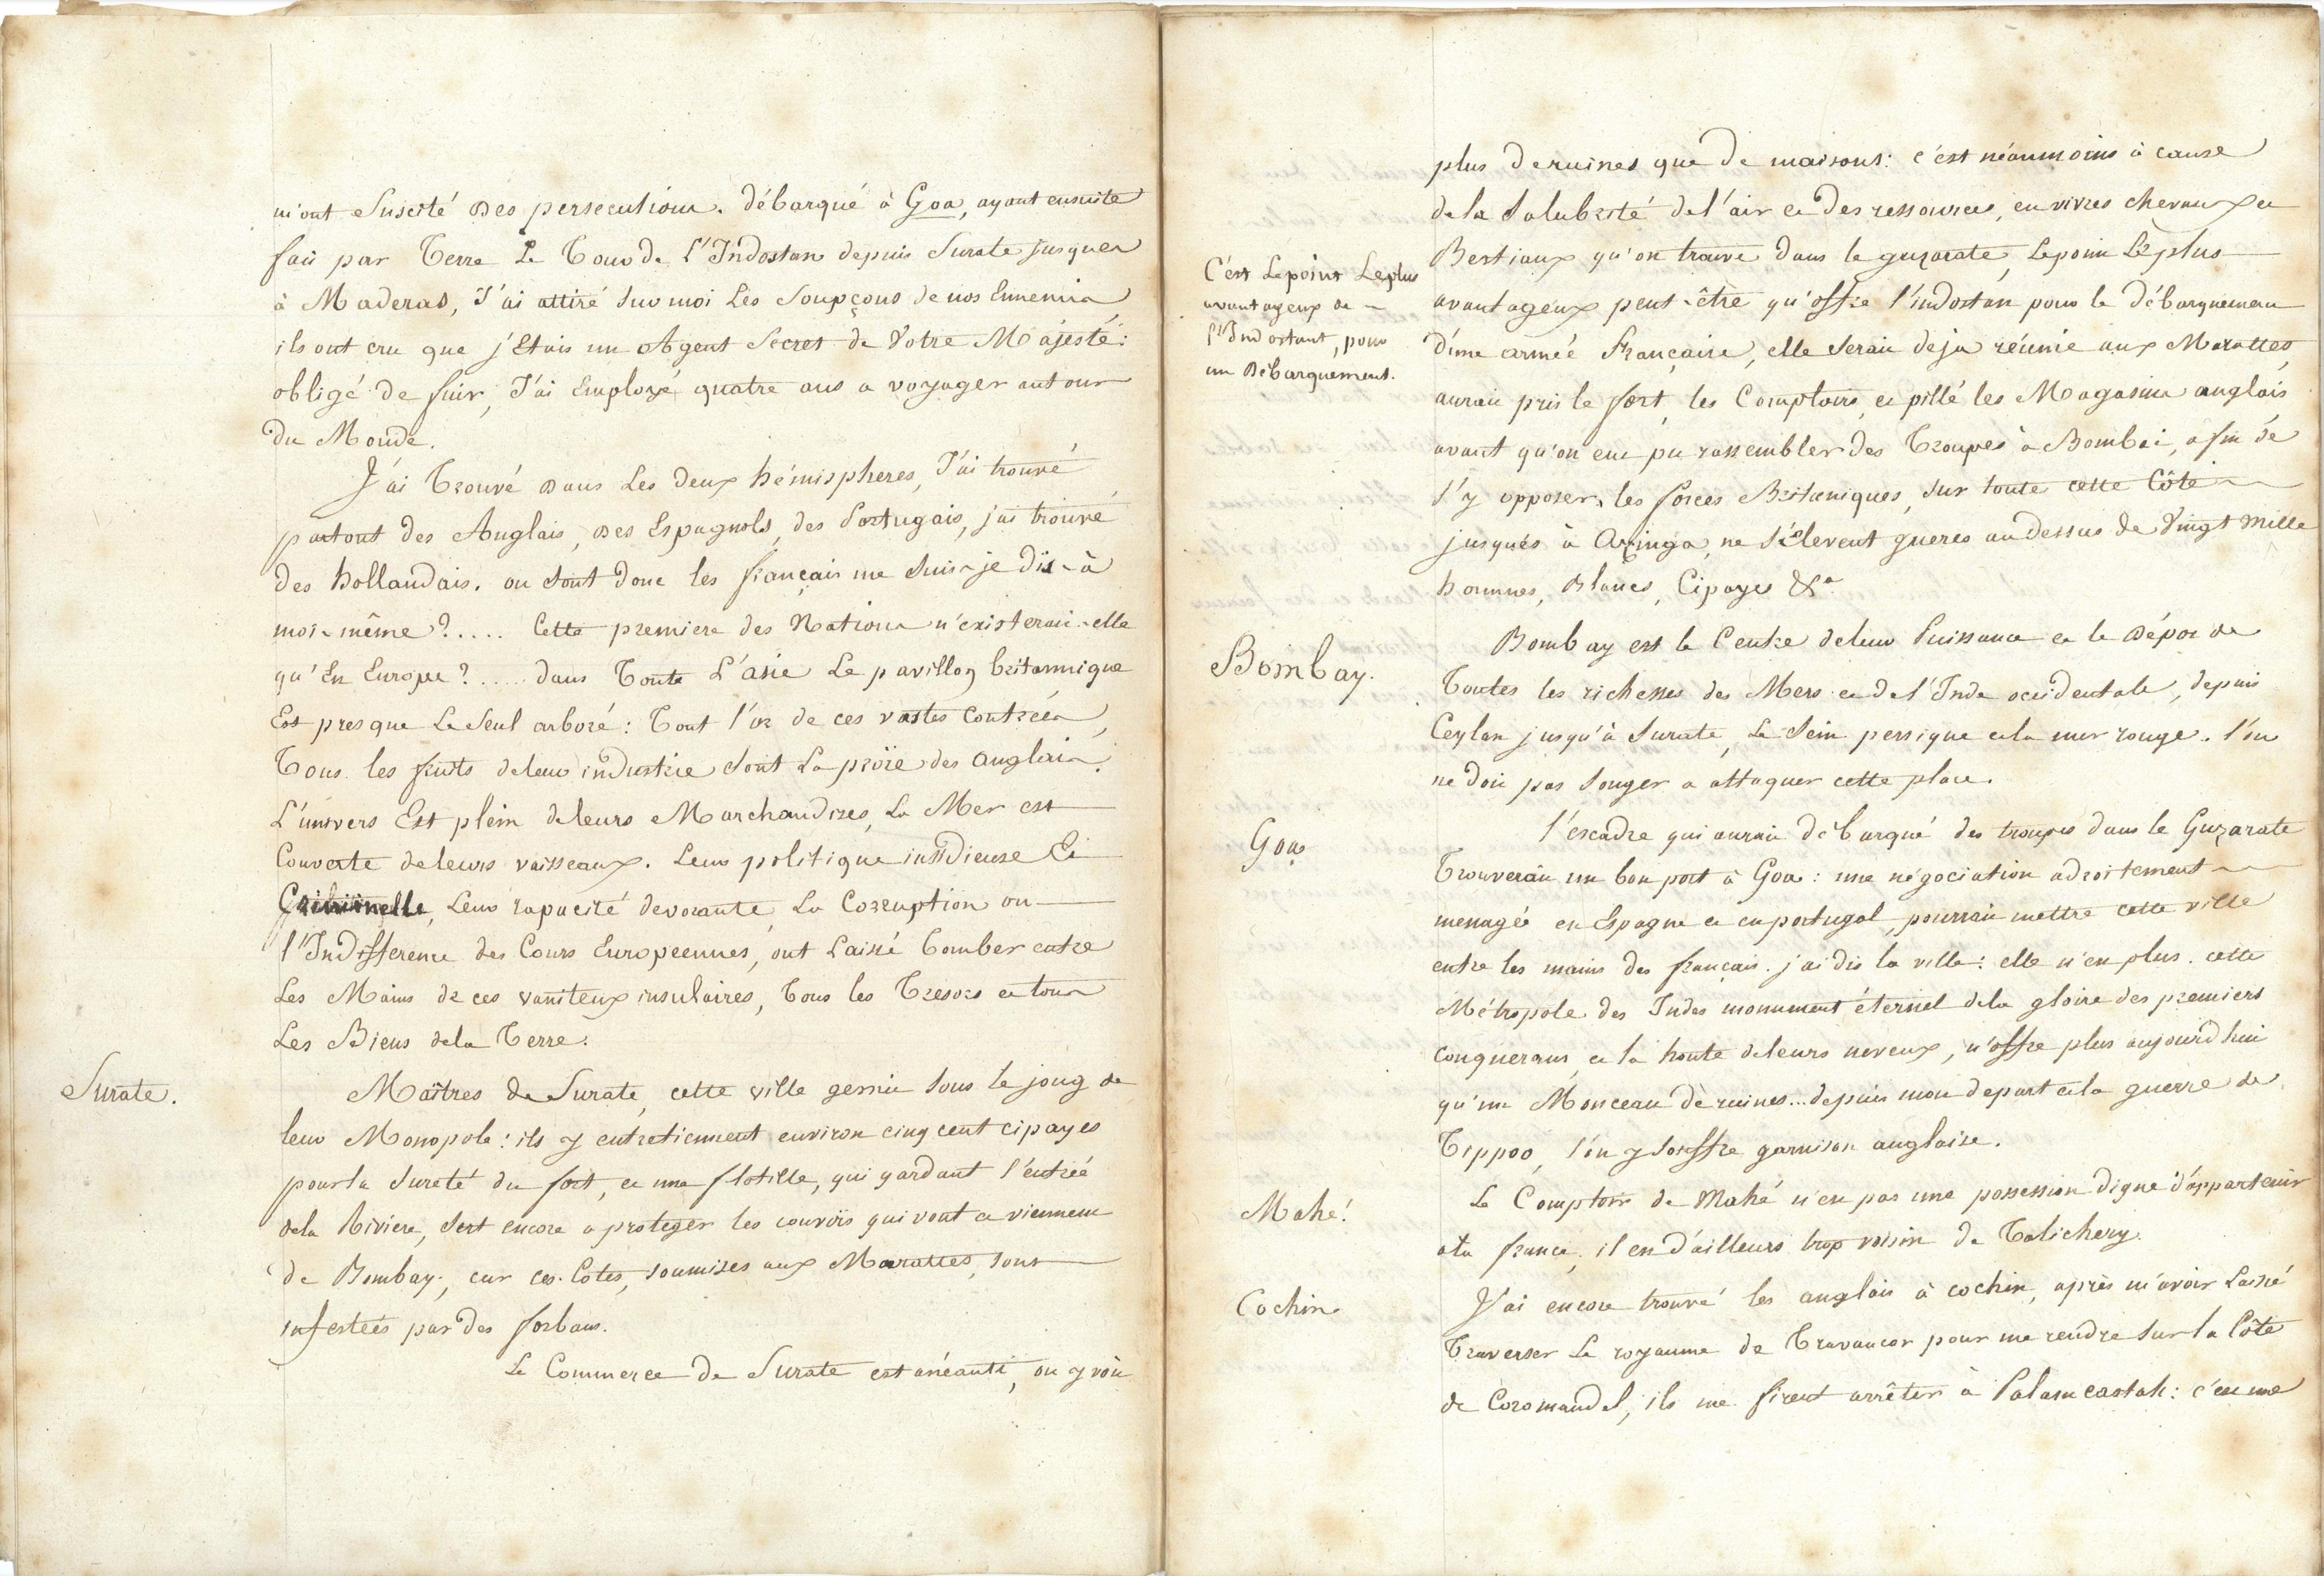 m'ont Suscité des persecutions. débarqué à Goa, ayant ensuite
fait par Terre Le Tour de L'Indostan depuis Surate jusques
à Maderas, J'ai attiré sur moi Les Soupçons de nos Ennemis
ils ont cru que j'Etais un Agent Secret de Votre Majesté:
obligé de fuir, J'ai Employé quatre ans a voyager autour
du Monde.
J'ai Trouvé dans Les deux hémispheres, J'ai trouvé
partout des Anglais, des Espagnols, des Portugais, j'ai trouvé
des hollandais. ou sont donc les français me suis-je dis-à
moi-même?..... Cette premiere des Nations n'existerait-elle
qu'En Europe?..... dans Toute L'asie Le pavillon britannique
Est presque Le Seul arboré: Tout l'or de ces vastes Contrées,
Tous les fruits de leur industrie sont La proïe des anglais.
L'univers Est plein de leurs Marchandises, La Mer est
Couverte de leurs vaisseaux. Leur politique insidieuse Et
Criminelle, Leur rapacité devorante, La Corruption ou
l'Indifference des Cours Européennes, ont Laissé Tomber entre
Les Mains de ces vaniteux insulaires, Tous les Tresors et tous
Les Biens de la Terre.
Surate.
Maîtres de Surate, cette ville gemit sous le joug de
leur Monopole: ils y entretiennent environ cinq cent cipayes
pour la Sureté du fort, et une flotille, qui gardant l'entrée
de la Riviere, sert encore a proteger les convois qui vont et viennent
de Bombay., car ces Côtes, soumises aux Marattes, sont
infestées par des forbans.
Le Commerce de Surate est anéanti, on y voit
plus de ruines que de maisons: c'est néanmoins à cause
de la Salubrité de l'air et des ressources, en vivres chevaux et
Bestiaux qu'on trouve dans le guzarate, Le point Le plus
C'est Le point Le plus
avantageux de
l'Indostant, pour
un Débarquement.
avantageux peut-être qu'offre l'indostan pour le débarquement
d'une armée Française, elle serait deja réunie aux Marattes,
aurait pris le fort, les Comptoirs, et pillé les Magasins anglais,
avant qu'on eut pu rassembler des Troupes à Bombai, afin de
s'y opposer. les forces Britaniques, sur toute cette Côte
jusqués à Azinga, ne s'élevent gueres au dessus de Vingt mille
hommes, Blancs, Cipayes &a
Bombay.
Bombay est le Centre de leur Puissance et le dépot de
Toutes les richesses des Mers et de l'Inde occidentale, depuis
Ceylan jusqu'à Surate, Le Sein persique et la mer rouge. l'on
ne doit pas songer a attaquer cette place.
Goa
l'escadre qui aurait débarqué des troupes dans le Guzarate
Trouverait un bon port à Goa: une négociation adroitement
menagée en Espagne et en portugal, pourrait mettre cette ville
entre les mains des français. j'ai dis la ville: elle n'est plus. cette
Métropole des Indes monument éternel de la gloire des premiers
conquerans, et la honte de leurs neveux, n'offre plus aujourd'hui
qu'un Monceau de ruines... depuis mon depart et la guerre de
Tippoo, l'on y souffre garnison anglaise.
Mahé.
Le Comptoir de Mahé n'est pas une possession digne d'appartenir
a la france, il est d'ailleurs trop voisin de Talichery.
Cochin
J'ai encore trouvé les anglais à cochin, après m'avoir Laissé
Traverser Le royaume de Travancor pour me rendre sur la Côte
de Coromandel, ils me firent arrêter à Palamcastah: c'est une